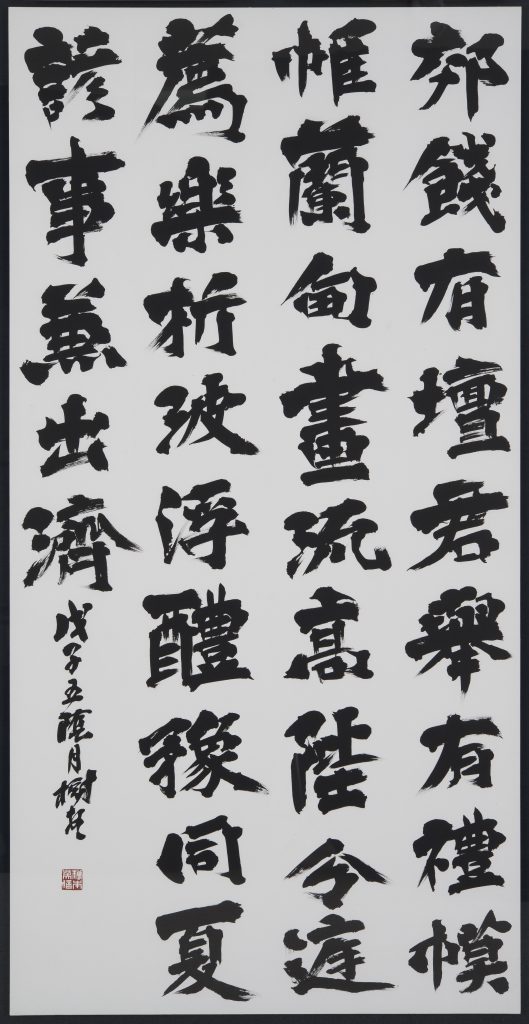 郊餞有壇君舉有禮幙
帷蘭甸畫流高陛分庭
薦樂析波浮醴豫同夏
諺事兼出濟
戊子五月樹